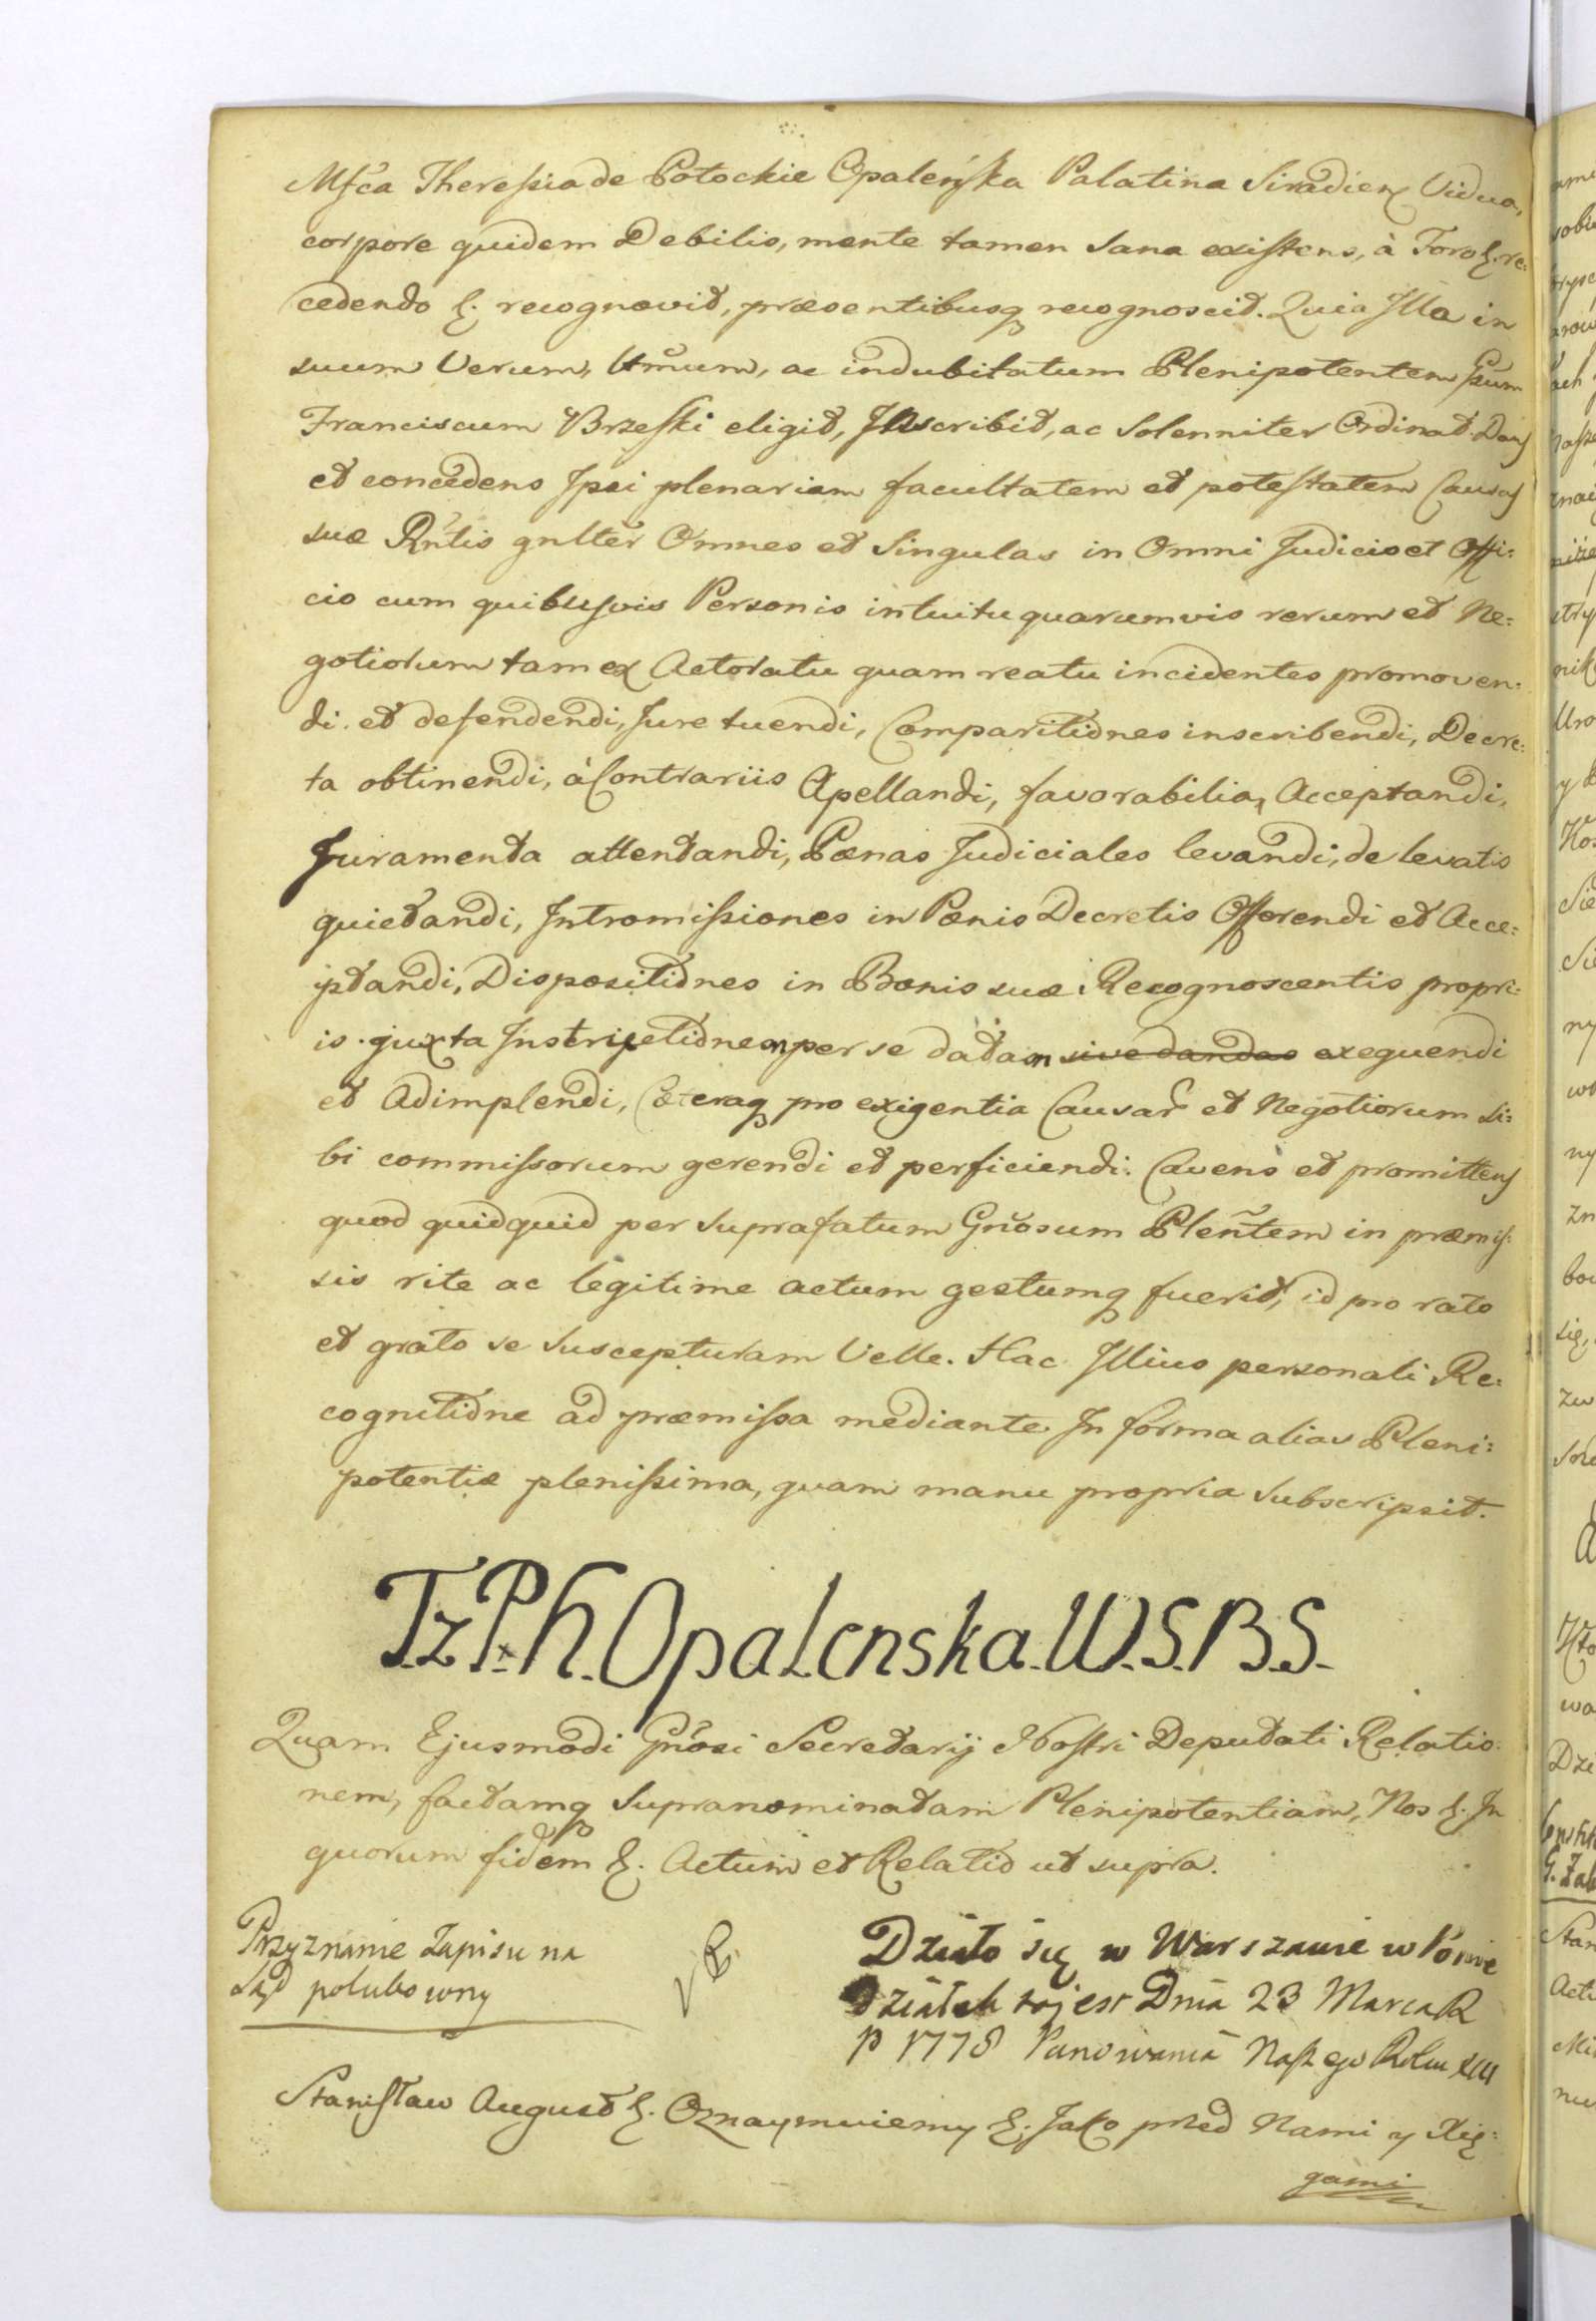 Mfca Theressia de Potockie Opaleńska Palatina Siradien Vidua,
corpore quidem Debilis, mente tamen sana existens, à Foro &. re:
cedendo &. recognovit, præsentibusq recognoscit. Quia Illa in
suum Verum, ac indubitatum Plenipotentem
Franciscum Brzeski eligit, Inscribit, ac Solenniter Ordinat. Dans
et concedens Ipsi plenariam facultatem et potestatem Causas
suæ Rntis gnlter Omnes et Singulas in Omni Judicio et Offi:
cio cum quibusvis Personis intuitu quarumvis rerum et Ne:
gotiorum tam ex Actoratu quam reatu incidentes promoven:
di et defendendi, Jure tuendi, Comparitiones inscribendi, Decre:
ta obtinendi, à Contrariis Apellandi, favorabilia, Acceptandi,
Juramenta attentandi, Pænas Judiciales levandi, de levatis
quietandi, Intromissiones in Pænis Decretis Offerendi et Acce:
ptandi, Dispositiones in Bonis suæ Recognoscentis propri:
is juxta Instructionem per se datam sive dandas exequendi
et Adimplendi, Cæteraq pro exigentia Causar et Negotiorum si:
bi commissorum gerendi et perficiendi. Cavens et promittens
quod quidquid per suprafatum Gnosum Plentem in præmis:
sis rite ac legitime actum gestumq fuerit, id pro rato
et grato se suscepturam Velle. Hac Illius personali Re:
cognitione ad præmissa mediante In forma alias Pleni:
potentiæ plenissima, quam manu propria subscripsit.
T.z P. h. Opalenska. W. S. B. S.
Quam Ejusmodi Gnosi Secretarij Nostri Deputati Relatio:
nem, factamq Supranominatam Plenipotentiam, Nos &. In
quorum fidem &. Actum et Relatio ut supra.
Przyznanie Zapisu na
Sąd polubowny
Działo się w Warszawie w Ponie
działek to jest Dnia 23 Marca R
P 1778 Panowania Naszego Roku XIV
Stanisław August &. Oznaymuiemy &. Jako przed Nami y Xię:
gami